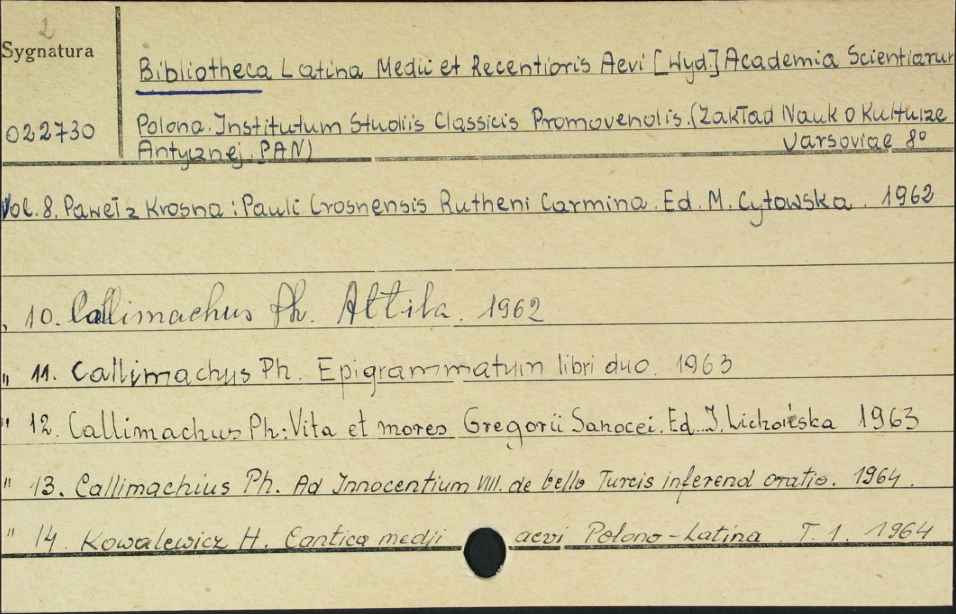 2
Sygnatura
Bibliotheca Latina Medii et Recentioris Aevi [Wyd.] Academia Scientiarum
022730
Polona. Institutum Studiis Classicis Promovendis. (Zakład Nauk o Kulturze
Antycznej PAN) Varsoviae 8°
Vol. 8. Paweł z Krosna: Pauli Crosnensis Rutheni Carmina. Ed. M. Cytowska. 1962
" 10. Callimachus Ph. Attila. 1962
" 11. Callimachus Ph. Epigrammatum libri duo. 1963
" 12. Callimachus Ph: Vita et mores Gregorii Sanocei. Ed. I. Lichońska 1963
" 13. Callimachius Ph. Ad Innocentium VIII. de bello Turcis inferend oratio. 1964.
" 14. Kowalewicz H. Cantica medji aevi Polono-Latina. T. 1. 1964